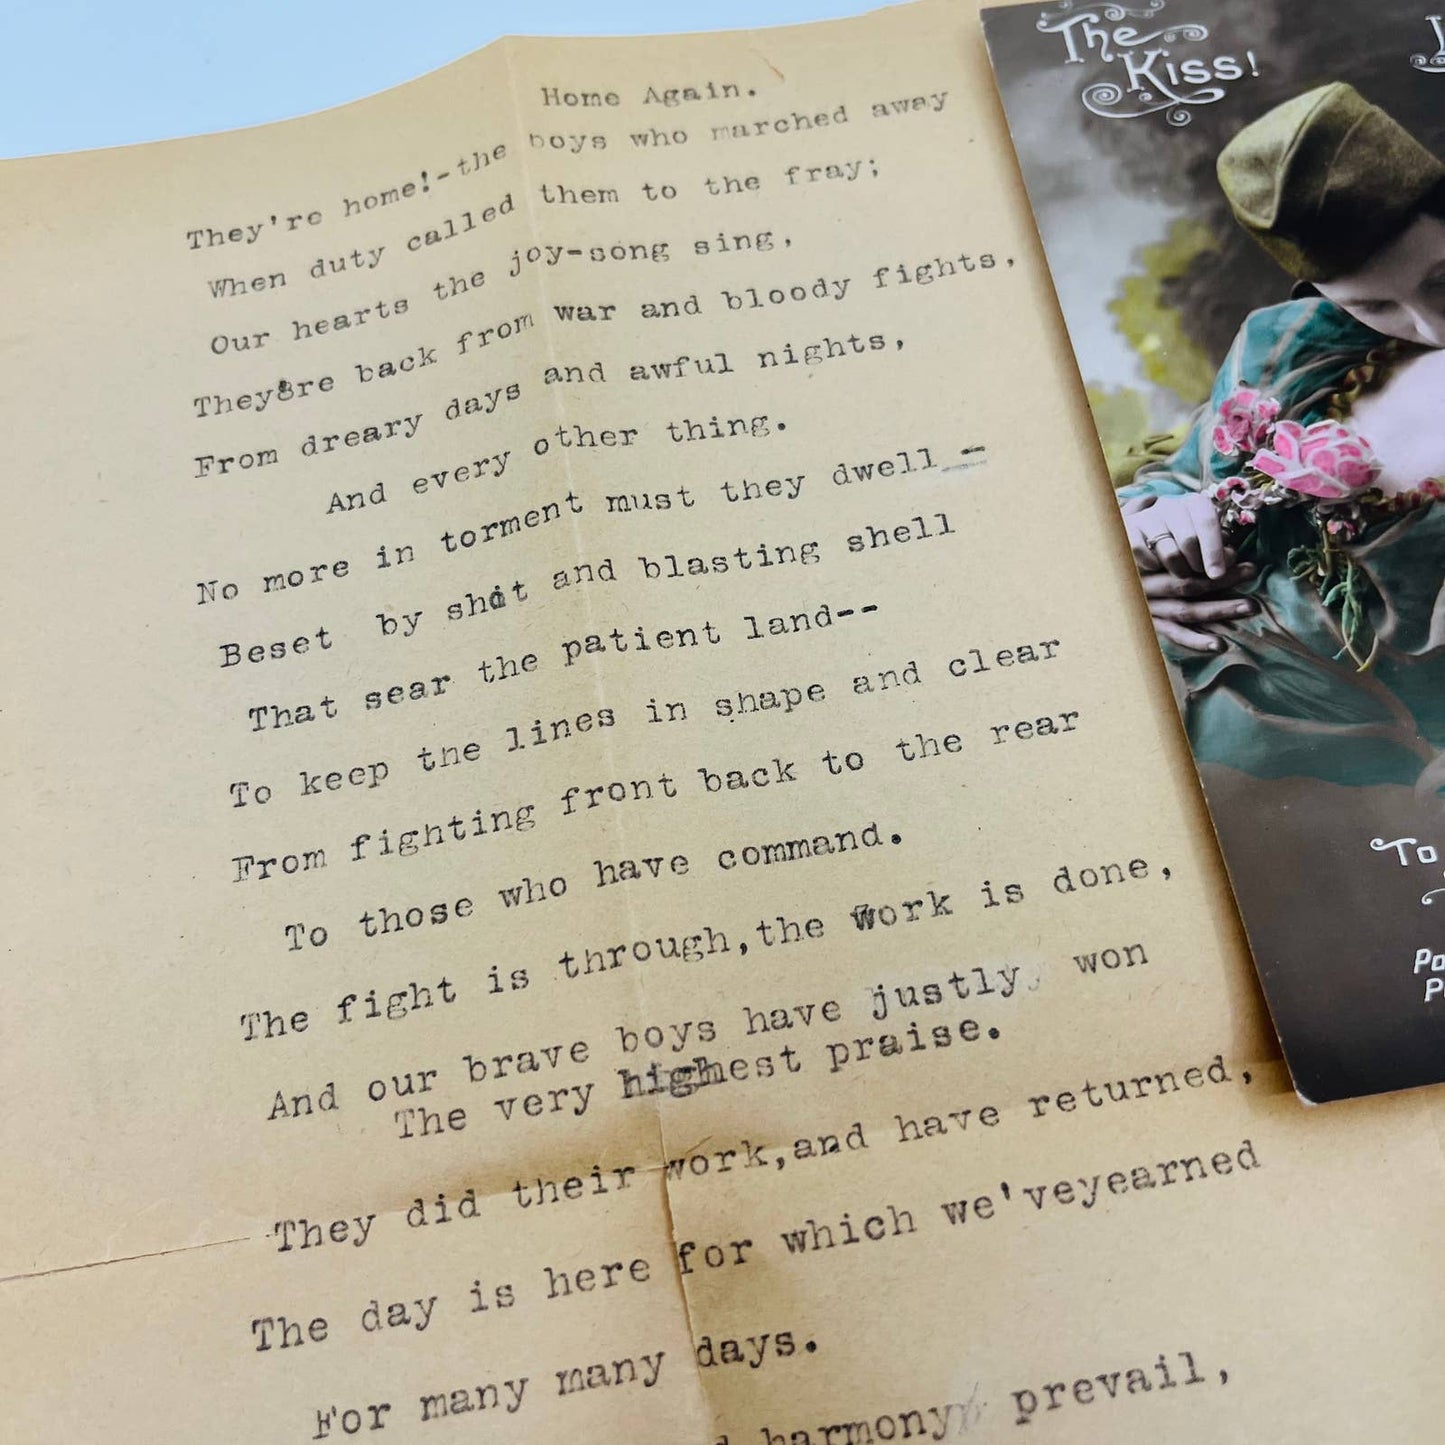 Home Again.
They're home!-the boys who marched away
When duty called them to the fray;
Our hearts the joy-song sing,
They're back from war and bloody fights,
From dreary days and awful nights,
And every other thing.
No more in torment must they dwell -
Beset by shot and blasting shell
That sear the patient land--
To keep the lines in shape and clear
From fighting front back to the rear
To those who have command.
The fight is through,the work is done,
And our brave boys have justly won
The very highest praise.
They did their work,and have returned,
The day is here for which we'veyearned
For many many days.
harmony prevail,
The
Kiss!
To